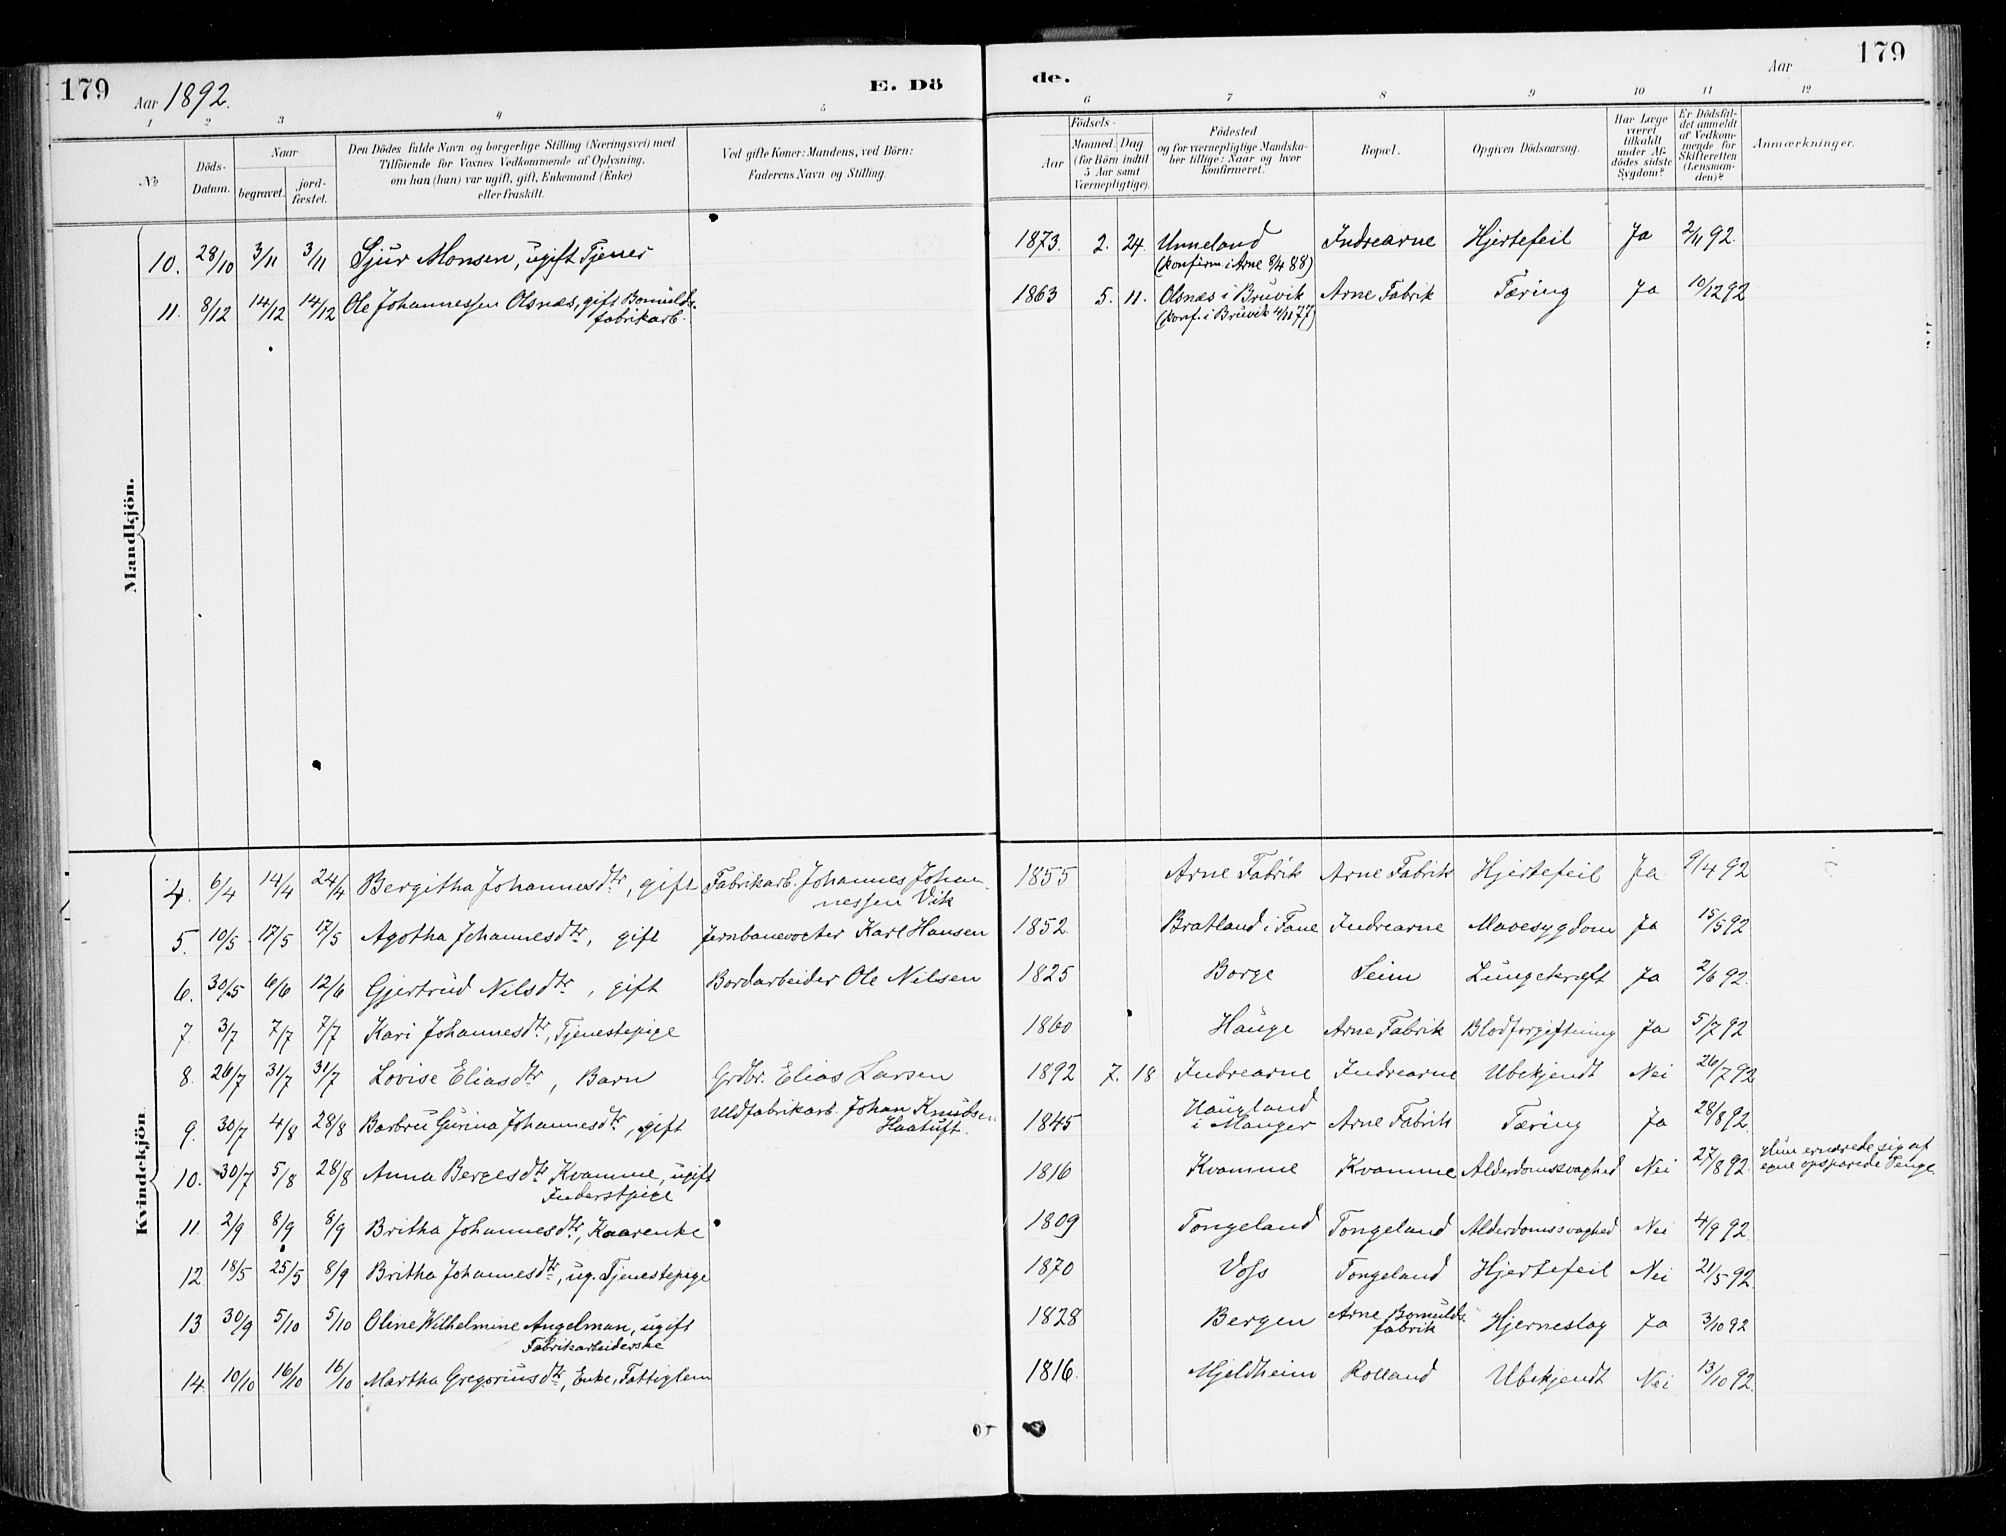 179
Aar 1892.
E. Dö
de.
Aar
179
1 2 3 4 5 6 7 8 9 10 11 12
No
Döds-
Datum.
Naar
begravet.
jord-
fæstet.
Den Dödes fulde Navn og borgerlige Stilling (Næringsvei) med
Tilföiende for Voxnes Vedkommende af Oplysning,
om han (hun) var ugift, gift, Enkemand (Enke)
eller fraskilt.
Ved gifte Koner: Mandens, ved Börn:
Faderens Navn og Stilling.
Födsels-
Aar
Maaned. Dag
(for Börn indtil
5 Aar samt
Værnepligtige).
Födested
og for værnepligtige Mandska-
ber tillige: Naar og hvor
konfirmeret.
Bopæl.
Opgiven Dödsaarsag.
Har Læge
været
tilkaldt
under Af-
dödes sidste
Sygdom?
Er Dödsfal-
det anmeldt
af Vedkom-
mende for
Skifteretten
(Lensman-
den)?
Anmærkninger.
Mandkjön.
10. 28/10 3/11 3/11 Sjur Monsen, ugift Tjener 1873. 2. 24. Unneland Indrearne Hjertefeil Ja 2/11 92.
(konfirm i Arne 8/4 88)
11. 8/12 14/12 14/12 Ole Johannessen Olsnæs, gift Bomulds- 1863 5. 11. Olsnæs i Bruvik Arne Fabrik Tæring Ja 10/12 92
fabrikarb. (konf. i Bruvik 4/11 77)
Kvindekjön.
4. 6/4 14/4 24/4 Bergitha Johannesdtr, gift Fabrikarb. Johannes Johan- 1855 Arne Fabrik Arne Fabrik Hjertefeil Ja 9/4 92
nessen Vik
5. 10/5 17/5 17/5 Agotha Johannesdtr, gift Jernbanevogter Karl Hansen 1852. Bratland i Fane Indrearne Mavesygdom Ja 15/5 92
6. 30/5 6/6 12/6 Gjertrud Nilsdtr, gift Bordarbeider Ole Nilsen 1825 Borge Seim Lungekræft Ja 2/6 92.
7. 3/7 7/7 7/7 Kari Johannesdtr, Tjenestepige 1860 Hauge Arne Fabrik Blodforgiftning Ja 5/7 92
8. 26/7 31/7 31/7 Lovise Eliasdtr, Barn Grdbr. Elias Larsen 1892 7. 18 Indrearne Indrearne Ubekjendt Nei 26/7 92
9. 30/7 4/8 28/8 Barbru Gurina Johannesdtr, gift Uldfabrikarb. Johan Knudsen 1845 Haugland Arne Fabrik Tæring Ja 28/8 92.
Haatuft. i Manger
10. 30/7 5/8 28/8 Anna Bergesdtr Kvamme, ugift 1816 Kvamme Kvamme Alderdomssvaghed Nei 27/8 92. Hun ernærede sig af
Inderstpige egne opsparede Penge.
11. 2/9 8/9 8/9 Britha Johannesdtr, Kaarenke 1809 Tongeland Tongeland Alderdomssvaghed Nei 4/9 92.
12 18/5 25/5 8/9 Britha Johannesdtr, ug. Tjenestepige 1870 Voss Tongeland Hjertefeil Nei 21/5 92.
13 30/9 5/10 5/10 Oline Wilhelmine Angelman, ugift 1828 Bergen Arne Bomulds- Hjerneslag Ja 3/10 92
Fabrikarbeiderske fabrik
14. 10/10 16/10 16/10 Martha Gregoriusdtr, Enke, Fattiglem 1816. Mjeldheim Rolland Ubekjendt Nei 13/10 92.